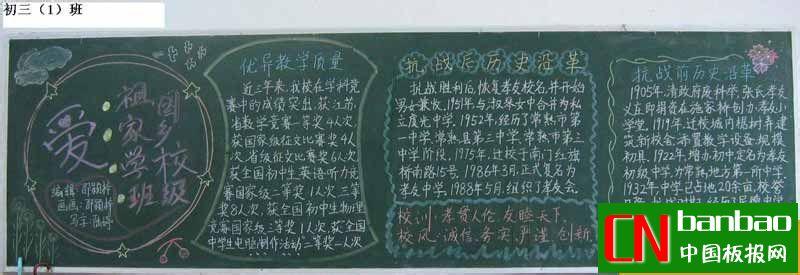 初三（1）班
爱：
祖国
家乡
学校
班级
编辑：
画画：
写字：
优异教学质量
近三年来,我校在学科竞
赛中的成绩突出,获江苏
省数学竞赛一等奖4人次
获国家级征文比赛奖4人
次,省级征文比赛奖6人次
获全国初中生英语听力竞
赛国家级二等奖1人次三等
奖8人次,获全国初中生物理
竞赛国家级三等奖1人次,获全国
中学生电脑制作活动二等奖一人次
抗战后历史沿革
抗战胜利后,恢复孝友校名,并开始
男女兼收,1951年与淑琴女中合并为私
立虞光中学.1952年,经历了常熟市第
一中学,常熟县第三中学,常熟市第三
中学阶段,1975年,迁校于南门红旗
桥南路15号,1986年3月,正式复名为
孝友中学,1988年5月,组织了孝友会.
校训:孝冠人伦 友睦天下
校风:诚信、务实、严谨、创新
抗战前历史沿革
1905年,清政府废科举,张氏孝友
义庄即捐资在施家桥创办孝友小
学堂,1919年,迁校城内椐树弄建
筑新校舍,添置教学设备,规模
初具,1922年,增办初中定名为孝友
初级中学,为常熟地方第一所中学,
1932年,中学已占地20余亩,校舍
CN banbao
中国板报网